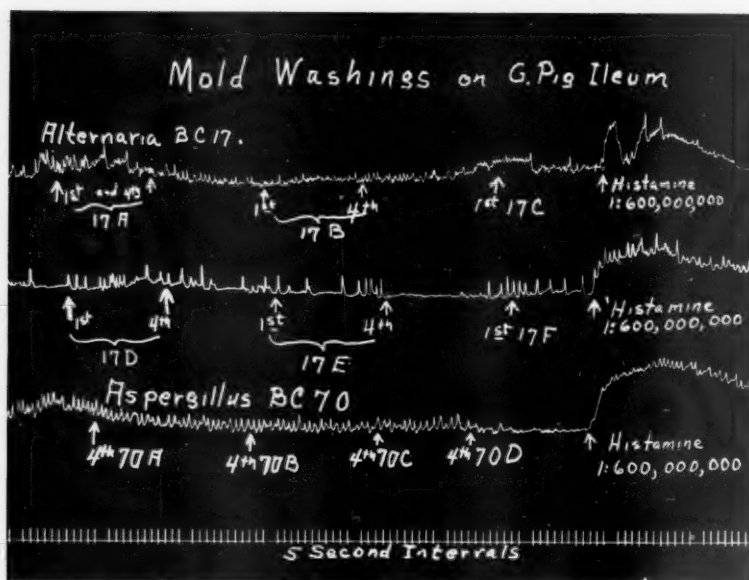 Mold Washings on G. Pig Ileum
Alternaria BC 17.
1st and 4th
17 A
1st 4th
17 B
1st 17 C
Histamine
1:600,000,000
1st 4th
17 D
1st 4th
17 E
1st 17 F
Histamine
1:600,000,000
Aspergillus BC 70
4th 70 A
4th 70 B
4th 70 C
4th 70 D
Histamine
1:600,000,000
5 Second Intervals